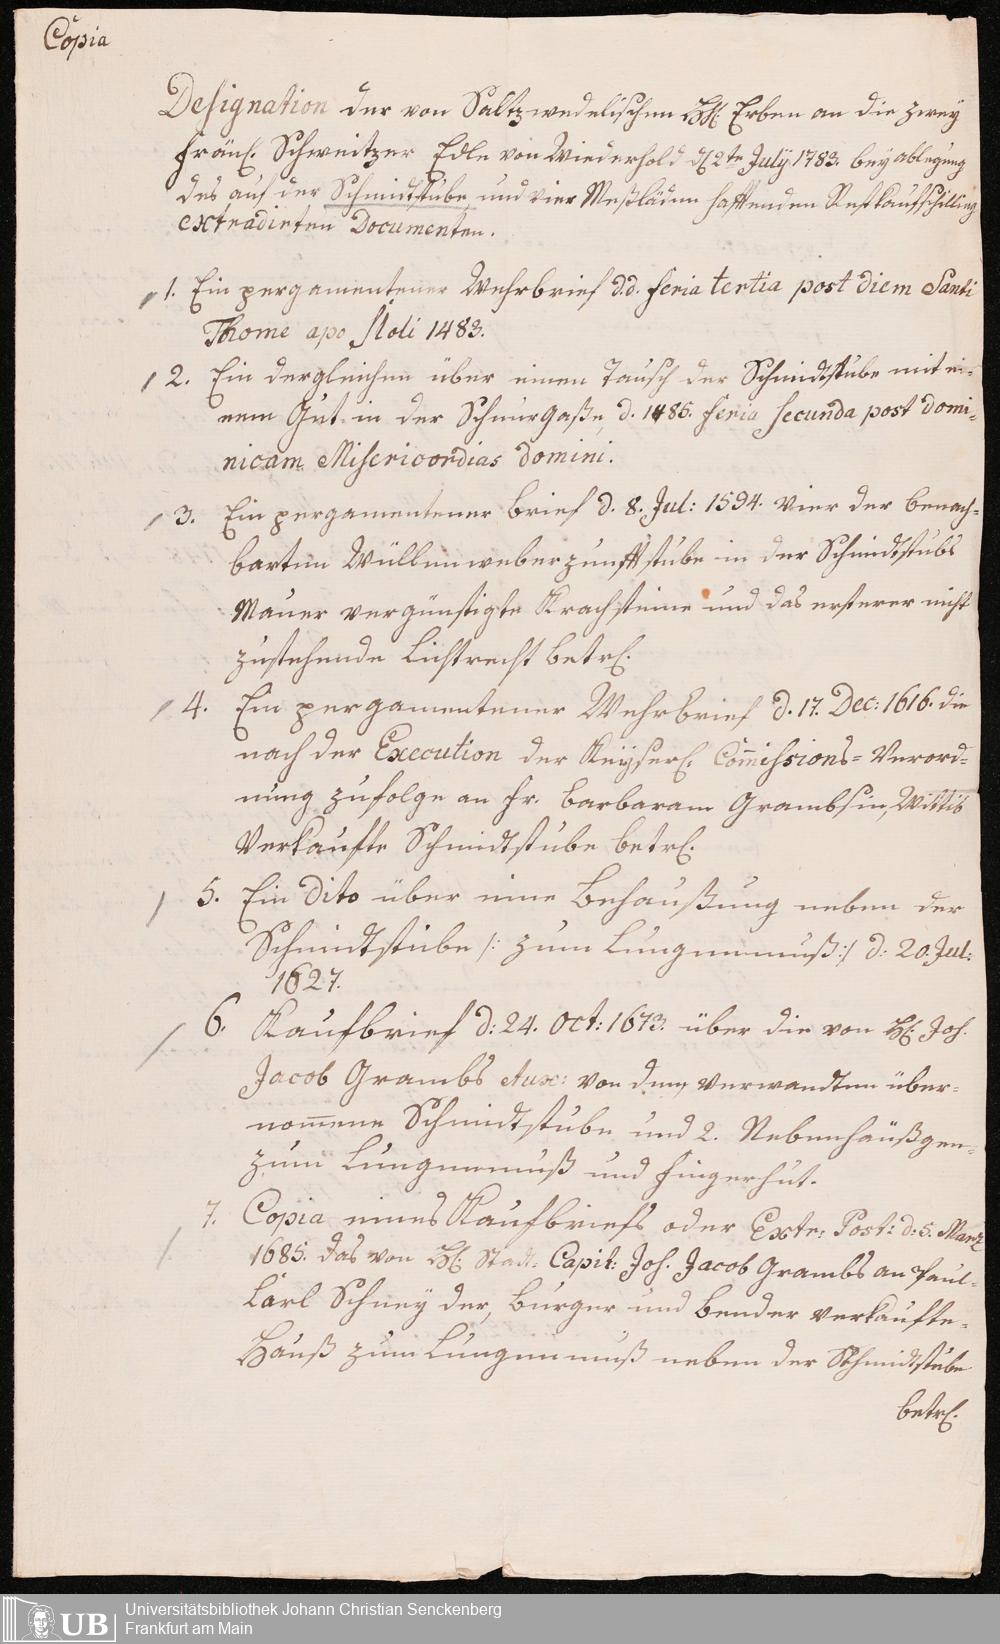 Copia
Designation der von Saltzwedelischen HH. Erben an die zwey
Fräul. Schweitzer Edle von Wiederhold d 2te July 1783. bey ablegung
des auf der Schmidtstube und vier Meßläden hafftenden Restkaufschilling
extradirten Documenten.
1. Ein pergamentener Wehrbrief d.d. feria tertia post diem Santi
Thome apo stoli 1483.
2. Ein dergleichen über einen Tausch der Schmidtstube mit ei-
nem Gut in der Schnurgaße, d. 1486. feria secunda post domi-
nicam Misericordias domini.
3. Ein pergamentener brief d. 8. Jul: 1594. vier der benach-
barten Wüllenweberzunfftstube in der Schmidtstubs
Mauer vergünstigte Krachsteine und das ersterer nicht
zustehende Lichtrecht betrl.
4. Ein pergamentener Wehrbrief d. 17. Dec: 1616. die
nach der Execution der Keyserl. Commissions= Verord=
nung zufolge an Fr. Barbaram Grambsin, Wittib
Verkaufte Schmidtstube betrl.
5. Ein Dito über eine Behaußung neben der
Schmidtstube /: zum Lungenmuß :/ d: 20. Jul:
1627.
6. Kaufbrief d: 24. Oct: 1673. über die von H. Joh.
Jacob Grambs von den verwandten über=
nommene Schmidtstube und 2. Nebenhäußgen
zum Lungenmuß und Fingerhut.
7. Copia eines Kaufbriefs oder Extr: Post: d: 5. Marz
1685. das von H. Stadt- Capit: Joh. Jacob Grambs an Paul=
Carl Schney der, Burger und Bender verkaufte=
Hauß zum Lungenmuß neben der Schmidtstube
betrl.
UB
Universitätsbibliothek Johann Christian Senckenberg
Frankfurt am Main